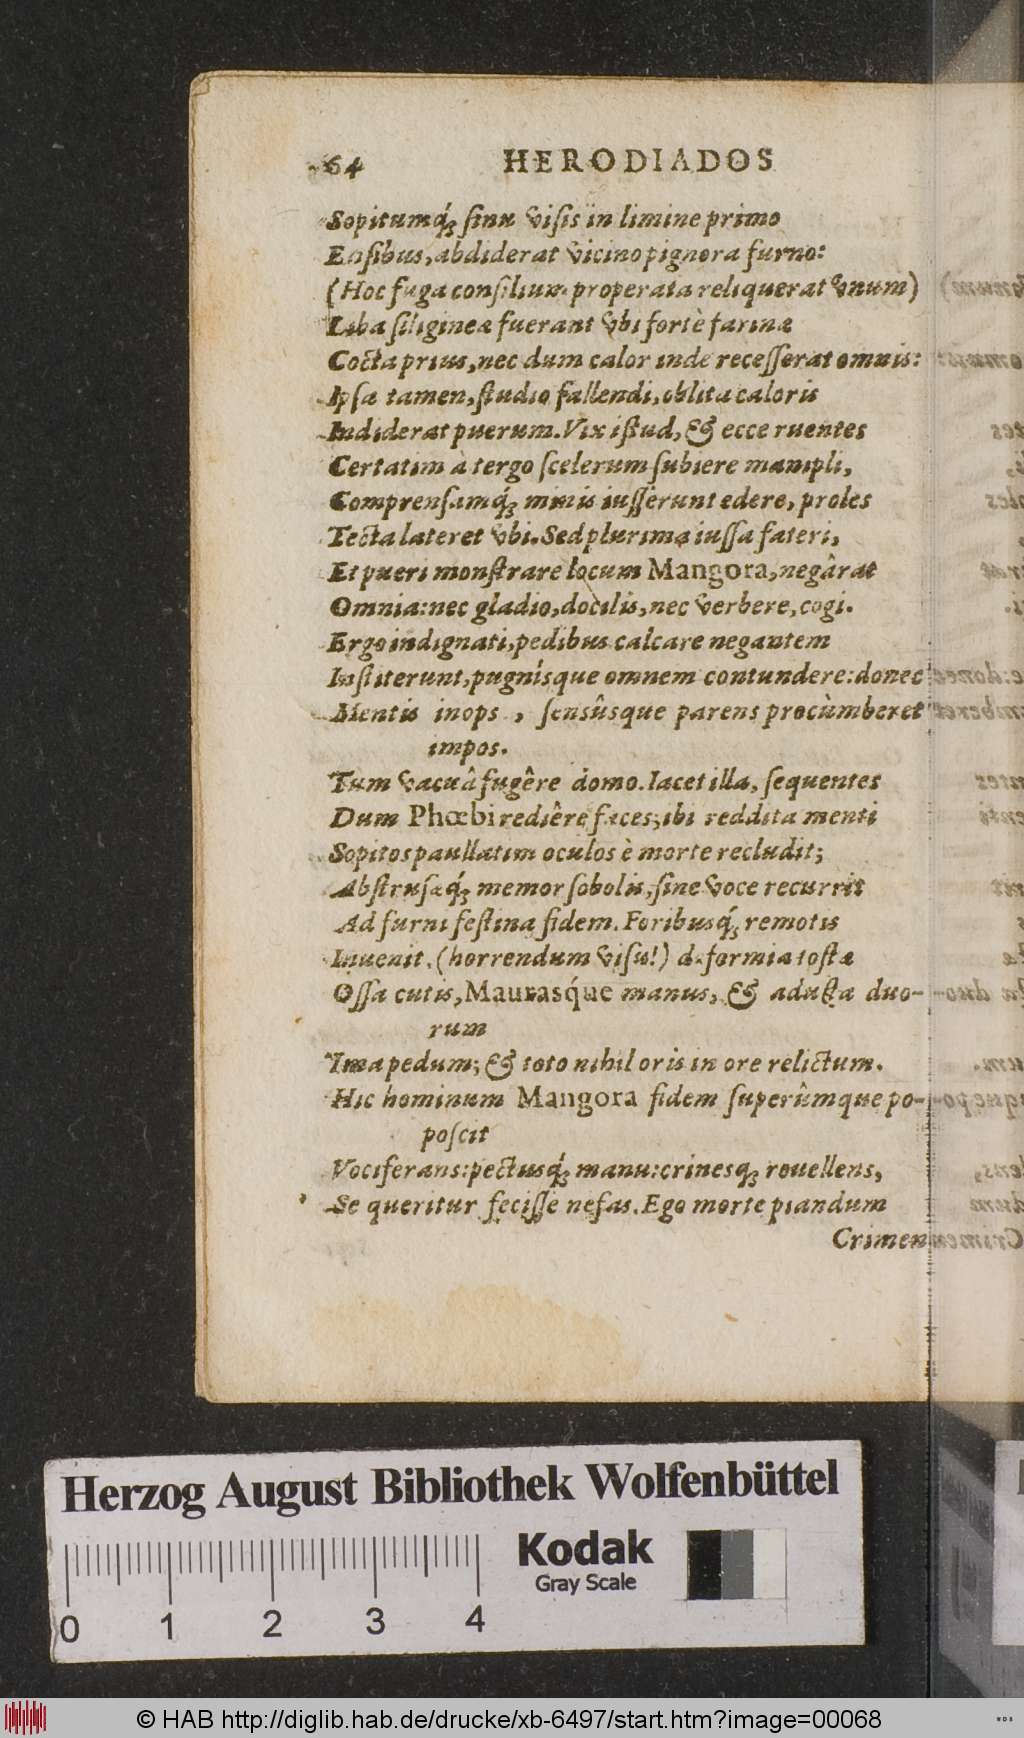 64 HERODIADOS
Sopitumq́ꝫ sinu visis in limine primo
Ensibus, abdiderat vicino pignora furno:
(Hoc fuga consilium properata reliquerat vnum)
Liba siligineæ fuerant vbi fortè farinæ
Cocta prius, nec dum calor inde recesserat omnis:
Ipsa tamen, studio fallendi, oblita caloris
Indiderat puerum. Vix istud, & ecce ruentes
Certatim à tergo scelerum subiere manipli,
Comprensamq́ꝫ minis iusserunt edere, proles
Tecta lateret vbi. Sed plurima iussa fateri,
Et pueri monstrare locum Mangora, negârat
Omnia: nec gladio, docilis, nec verbere, cogi.
Ergo indignati, pedibus calcare negantem
Institerunt, pugnísque omnem contundere: donec
Mentis inops, sensûsque parens procùmberet
impos.
Tum vacuâ fugêre domo. Iacet illa, sequentes
Dum Phœbi rediêre faces; ibi reddita menti
Sopitos paullatim oculos è morte recludit;
Abstrusæq́ꝫ memor sobolis, sine voce recurrit
Ad furni festina fidem. Foribusq́ꝫ remotis
Inuenit, (horrendum visu!) deformia tostæ
Ossa cutis, Maurasq́ue manus, & adusta duo-
rum
Ima pedum; & toto nihil oris in ore relictum.
Hic hominum Mangora fidem superûmque po-
poscit
Vociferans: pectusq́ꝫ manu: crinesqꝫ reuellens,
Se queritur fecisse nefas. Ego morte piandum
Crimen
Herzog August Bibliothek Wolfenbüttel
Kodak
Gray Scale
0 1 2 3 4
© HAB http://diglib.hab.de/drucke/xb-6497/start.htm?image=00068